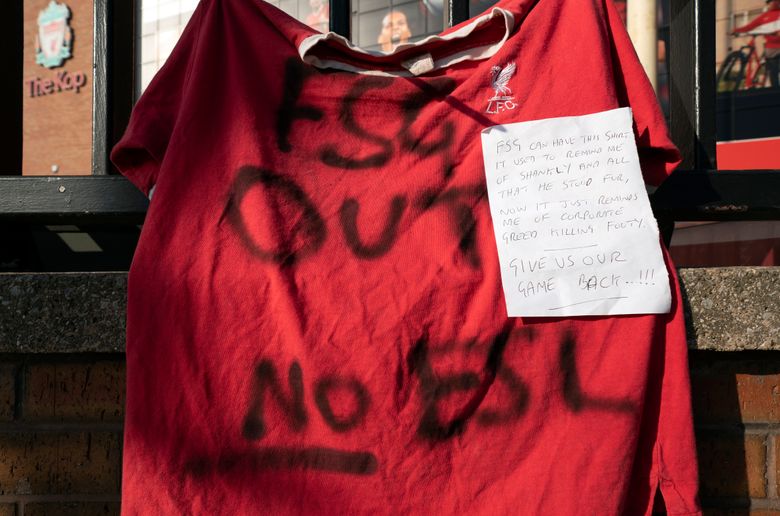 The Kop
L.F.C.
FSG
OUT
NO ESL
FSG CAN HAVE THIS SHIRT
IT USED TO REMIND ME
OF SHANKLY AND ALL
THAT HE STOOD FUR,
NOW IT JUST REMINDS
ME OF CORPORATE
GREED KILLING FOOTY.
GIVE US OUR
GAME BACK...!!!